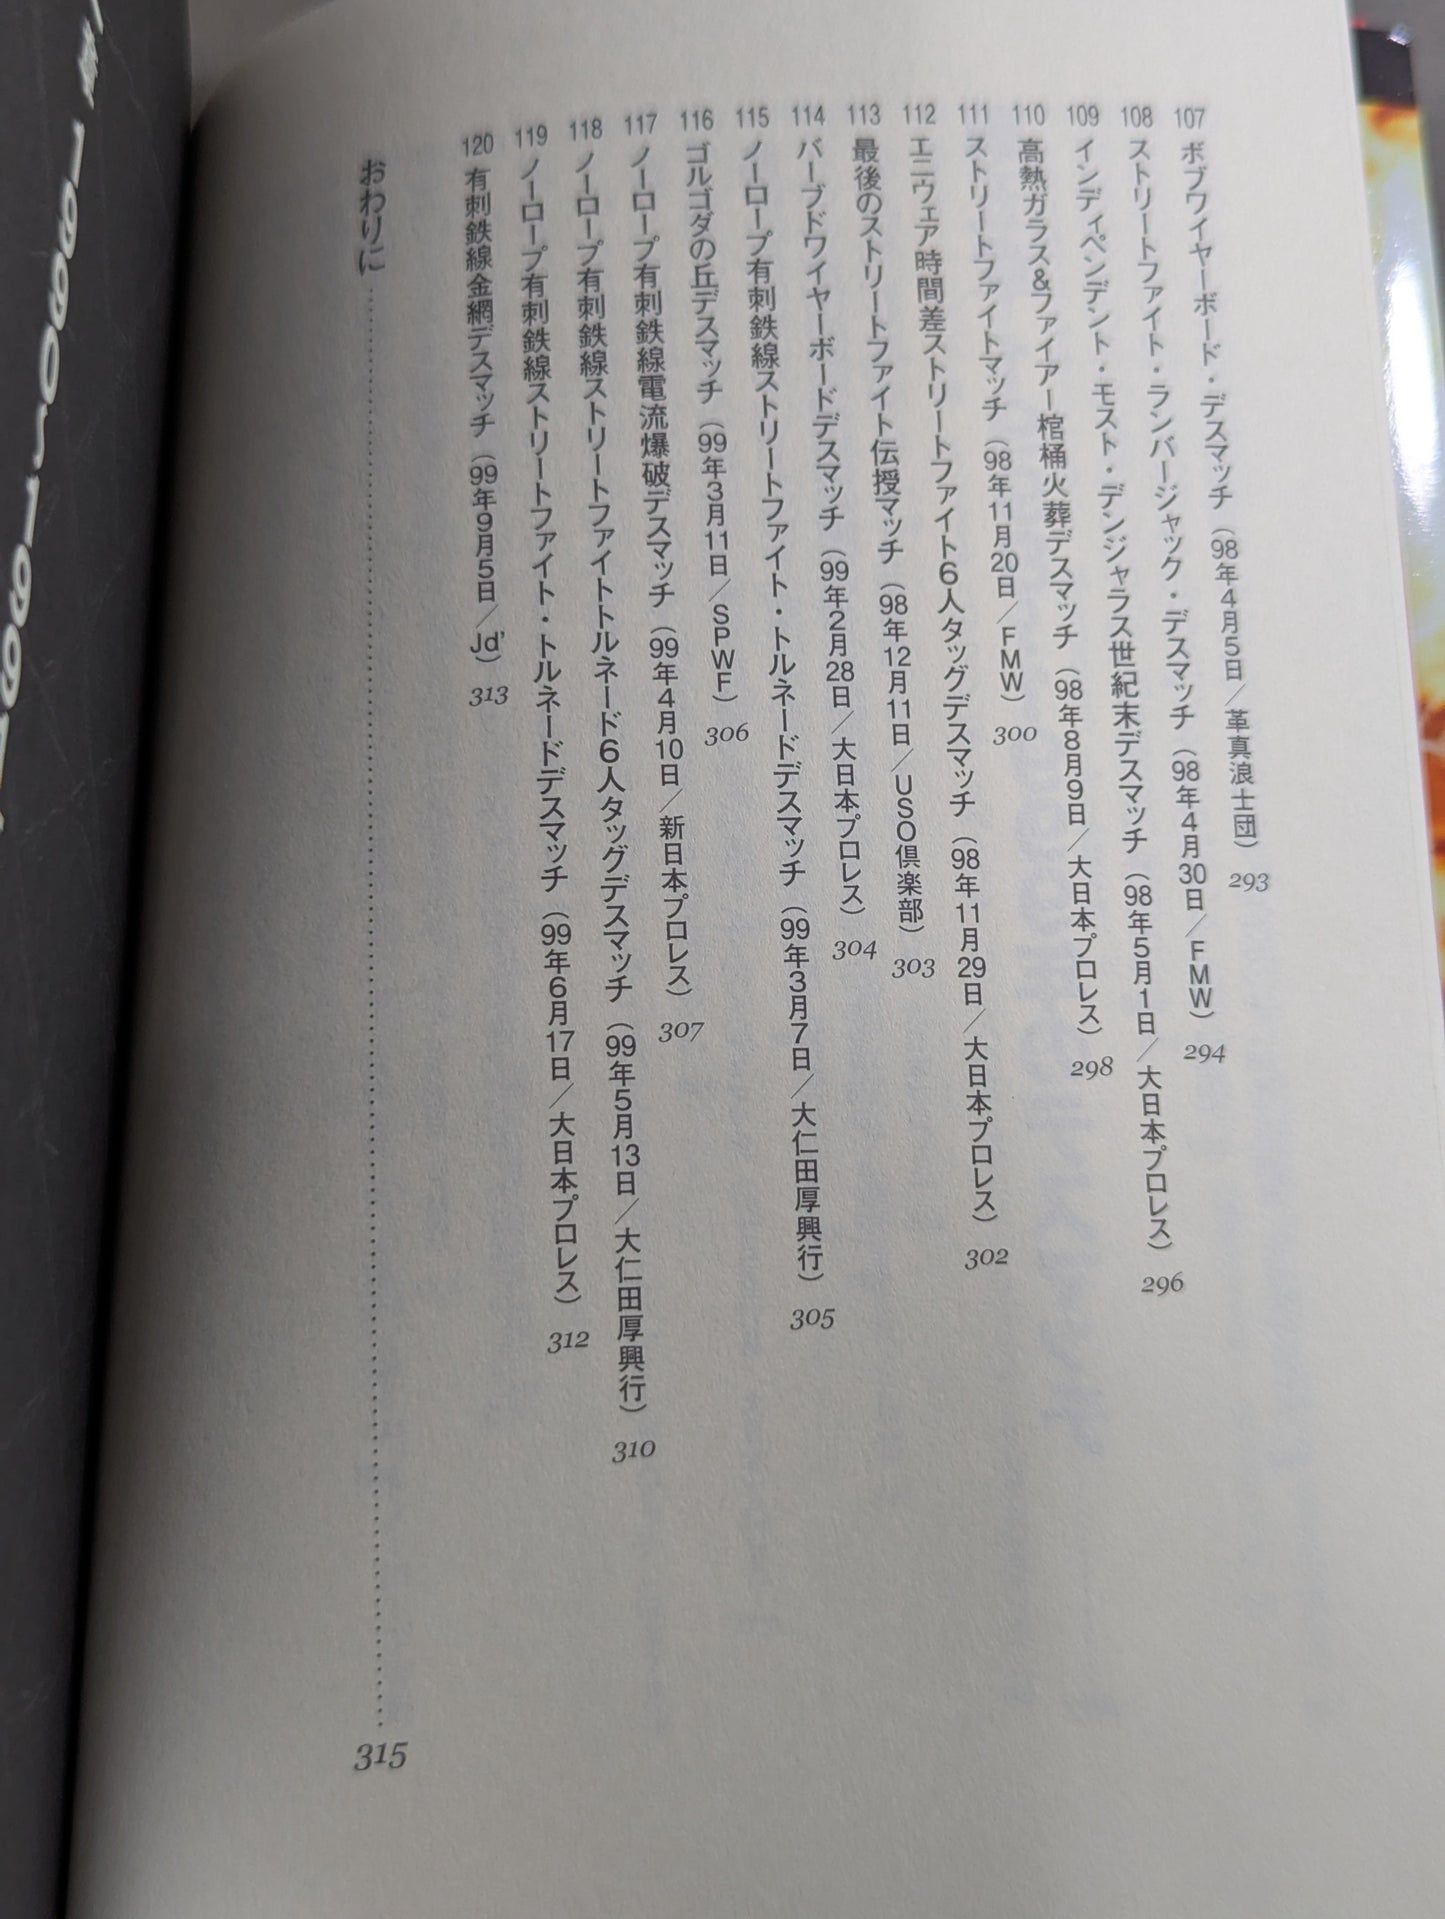 107 ボブワイヤーボード・デスマッチ（98年4月5日／革真浪士団）293
108 ストリートファイト・ランバージャック・デスマッチ（98年4月30日／FMW）294
109 インディペンデント・モスト・デンジャラス世紀末デスマッチ（98年5月1日／大日本プロレス）296
110 高熱ガラス&ファイアー棺桶火葬デスマッチ（98年8月9日／大日本プロレス）298
111 ストリートファイトマッチ（98年11月20日／FMW）300
112 エニウェア時間差ストリートファイト6人タッグデスマッチ（98年11月29日／大日本プロレス）302
113 最後のストリートファイト伝授マッチ（98年12月11日／USO倶楽部）303
114 バーブドワイヤーボードデスマッチ（99年2月28日／大日本プロレス）304
115 ノーロープ有刺鉄線ストリートファイト・トルネードデスマッチ（99年3月7日／大仁田厚興行）305
116 ゴルゴダの丘デスマッチ（99年3月11日／SPWF）306
117 ノーロープ有刺鉄線電流爆破デスマッチ（99年4月10日／新日本プロレス）307
118 ノーロープ有刺鉄線ストリートファイトトルネード6人タッグデスマッチ（99年5月13日／大仁田厚興行）310
119 ノーロープ有刺鉄線ストリートファイト・トルネードデスマッチ（99年6月17日／大日本プロレス）312
120 有刺鉄線金網デスマッチ（99年9月5日／Jd'）313
おわりに……………………………………315